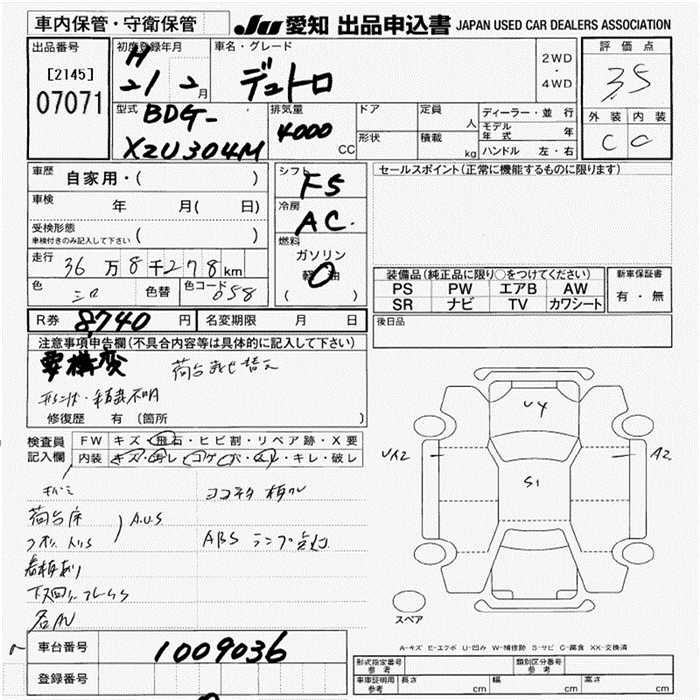 車内保管・守衛保管
JU 愛知 出品申込書 JAPAN USED CAR DEALERS ASSOCIATION
出品番号
[2145]
07071
初度登録年月
H
21 2 月
車名・グレード
デュトロ
2WD
・
4WD
評価点
3.5
外装 内装
C C
型式
BDG-
XZU304M
排気量
4000
CC
ドア
形状
定員
人
積載
kg
ディーラー・並行
モデル年式 年
ハンドル 左・右
車歴
自家用・( )
車検
年 月( 日)
受検形態
車検付きのみ記入して下さい ( )
走行
36万8千278km
色
シロ
色替
色コード
058
シフト
F5
冷房
AC.
燃料
ガソリン
軽油
( )
セールスポイント(正常に機能するものに限ります)
装備品(純正品に限り○をつけてください)
PS PW エアB AW
SR ナビ TV カワシート
新車保証書
有・無
R券 8,740 円
名変期限 月 日
後日品
注意事項申告欄(不具合内容等は具体的に記入して下さい)
要構変 荷台載せ替え
形状・積載不明
修復歴 有(箇所 )
検査員
記入欄
FW キズ・飛石・ヒビ割・リペア跡・X要
内装 キズ・汚レ・コゲ・穴・スレ・キレ・破レ
荷台床
A.U.S
ABS ランプ点灯
UY
UA2
A2
S1
スペア
A-キズ E-エクボ U-凹み W-補修跡 S-サビ C-腐食 XX-交換済
車台番号
1009036
登録番号
形式指定番号
参考
類別区分番号
参考
車庫証明用
参考
長さ cm
幅 cm
高さ cm